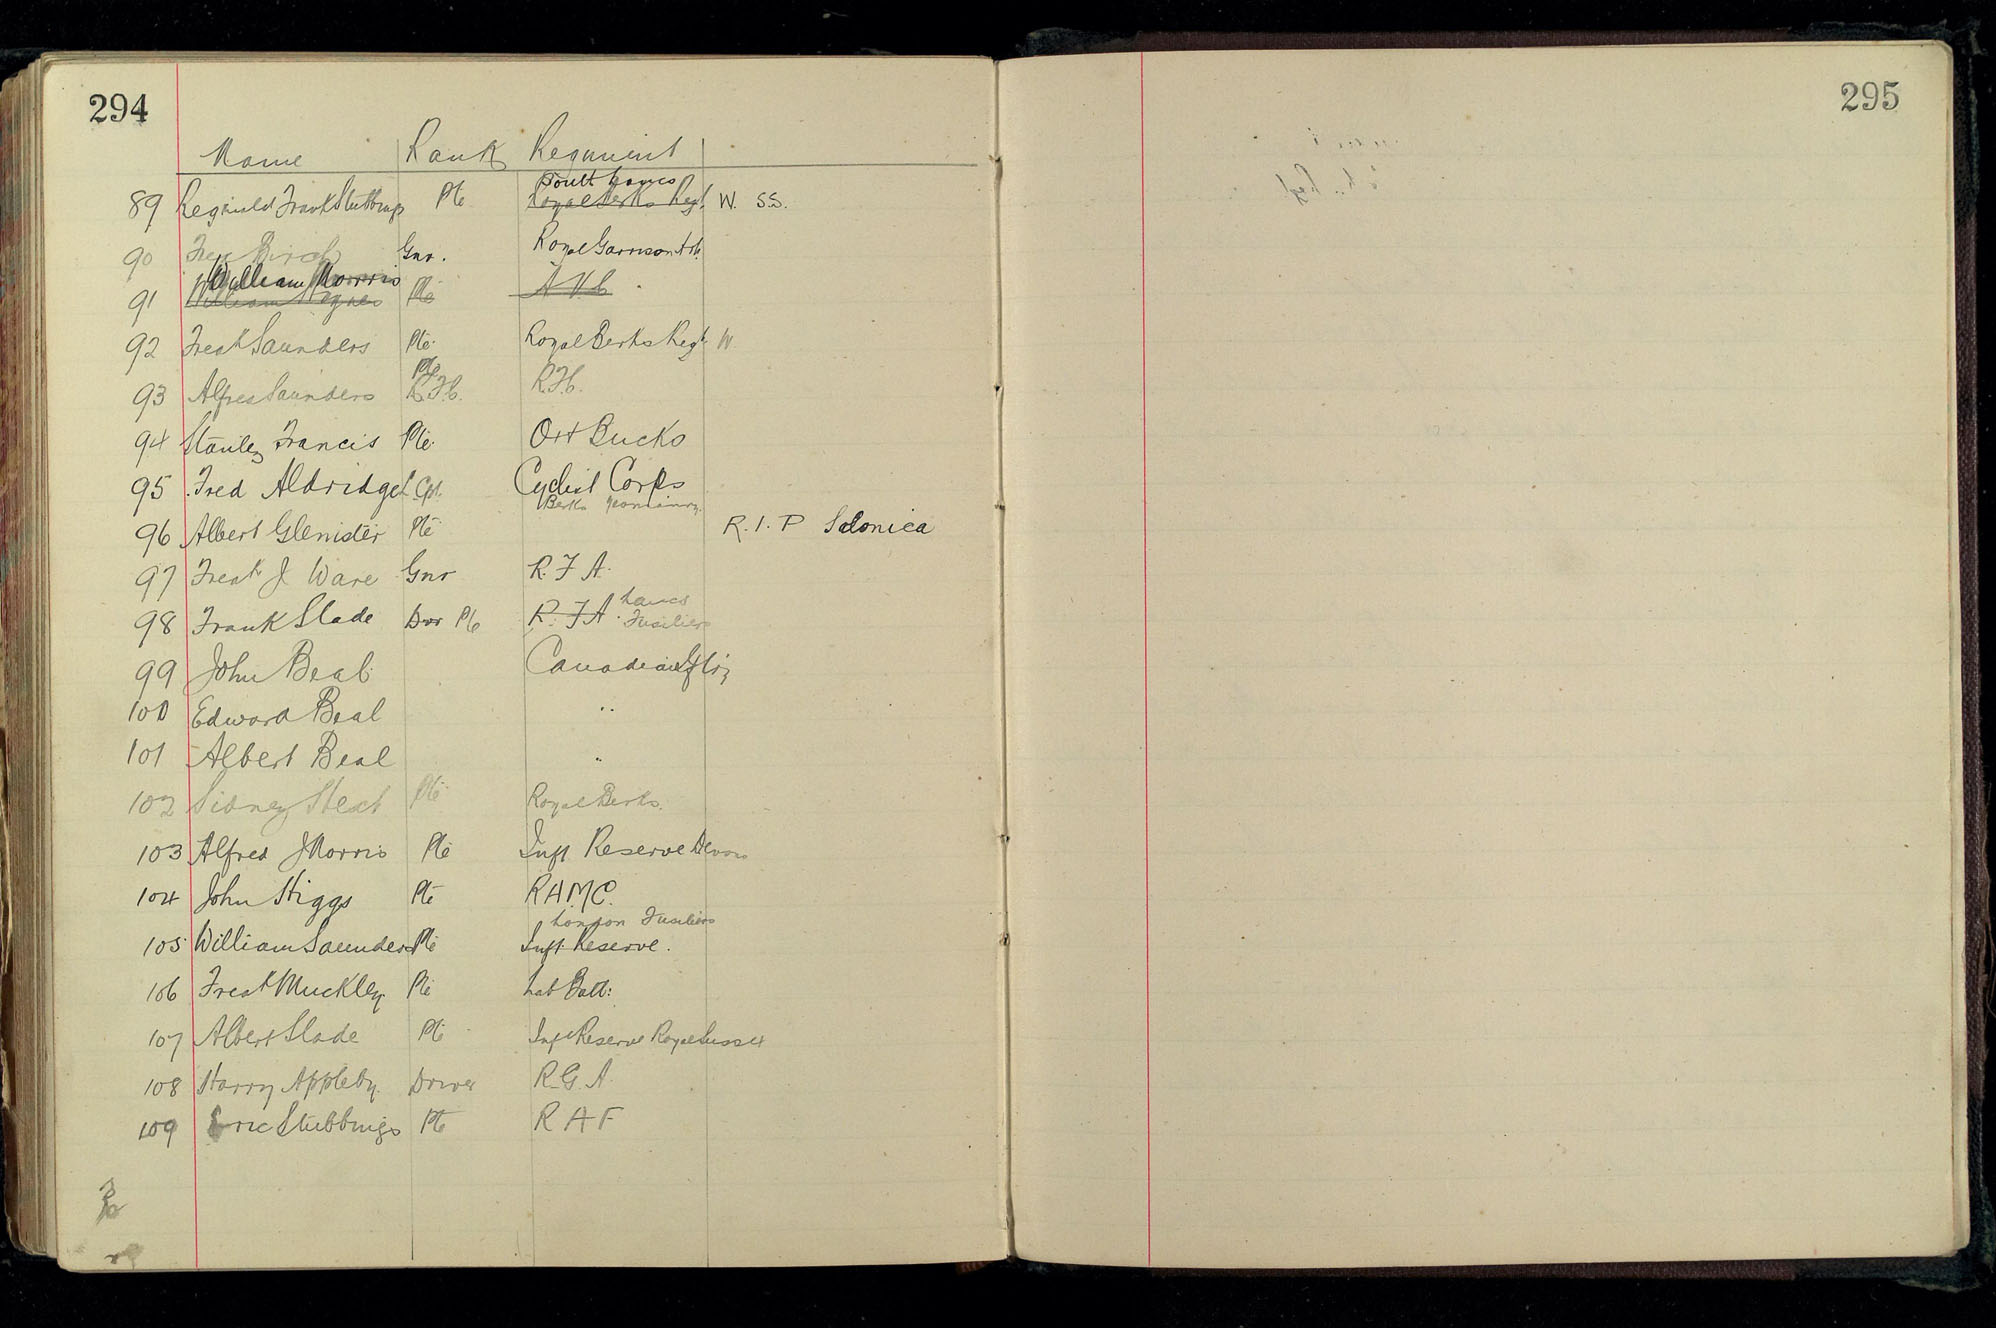 294
295
Name Rank Regiment
South Lancs
89 Reginald Frank Stubbings Pte Royal Berks Regt. W. S.S.
90 Fred Birch Gnr. Royal Garrison Art.
William Morris
91 William Pte A V C
92 Fredk Saunders Pte. Royal Berks Regt. W.
Pte
93 Alfred Saunders R.F.C. R.F.C.
94 Stanley Francis Pte. Oxt Bucks
95 Fred Aldridge L. Cpl. Cyclist Corps
Berks Yeomanry.
96 Albert Glenister Pte R. I. P Salonica
97 Fredk J Ware Gnr R. F A.
Lancs
98 Frank Slade Dvr Pte R. F A. Fusiliers
99 John Beal Canadian
100 Edward Beal "
101 Albert Beal "
102 Sidney Pte Royal Berks.
103 Alfred J Morris Pte Inft. Reserve Devons
104 John Higgs Pte R A M C.
London Fusiliers
105 William Saunders Pte Inft. Reserve.
106 Fredk Muckley Pte Lab Batt:
107 Albert Slade Pte Inf Reserve Royal Sussex
108 Harry Appleby. Driver R. G. A.
109 Eric Stubbings Pte R A F